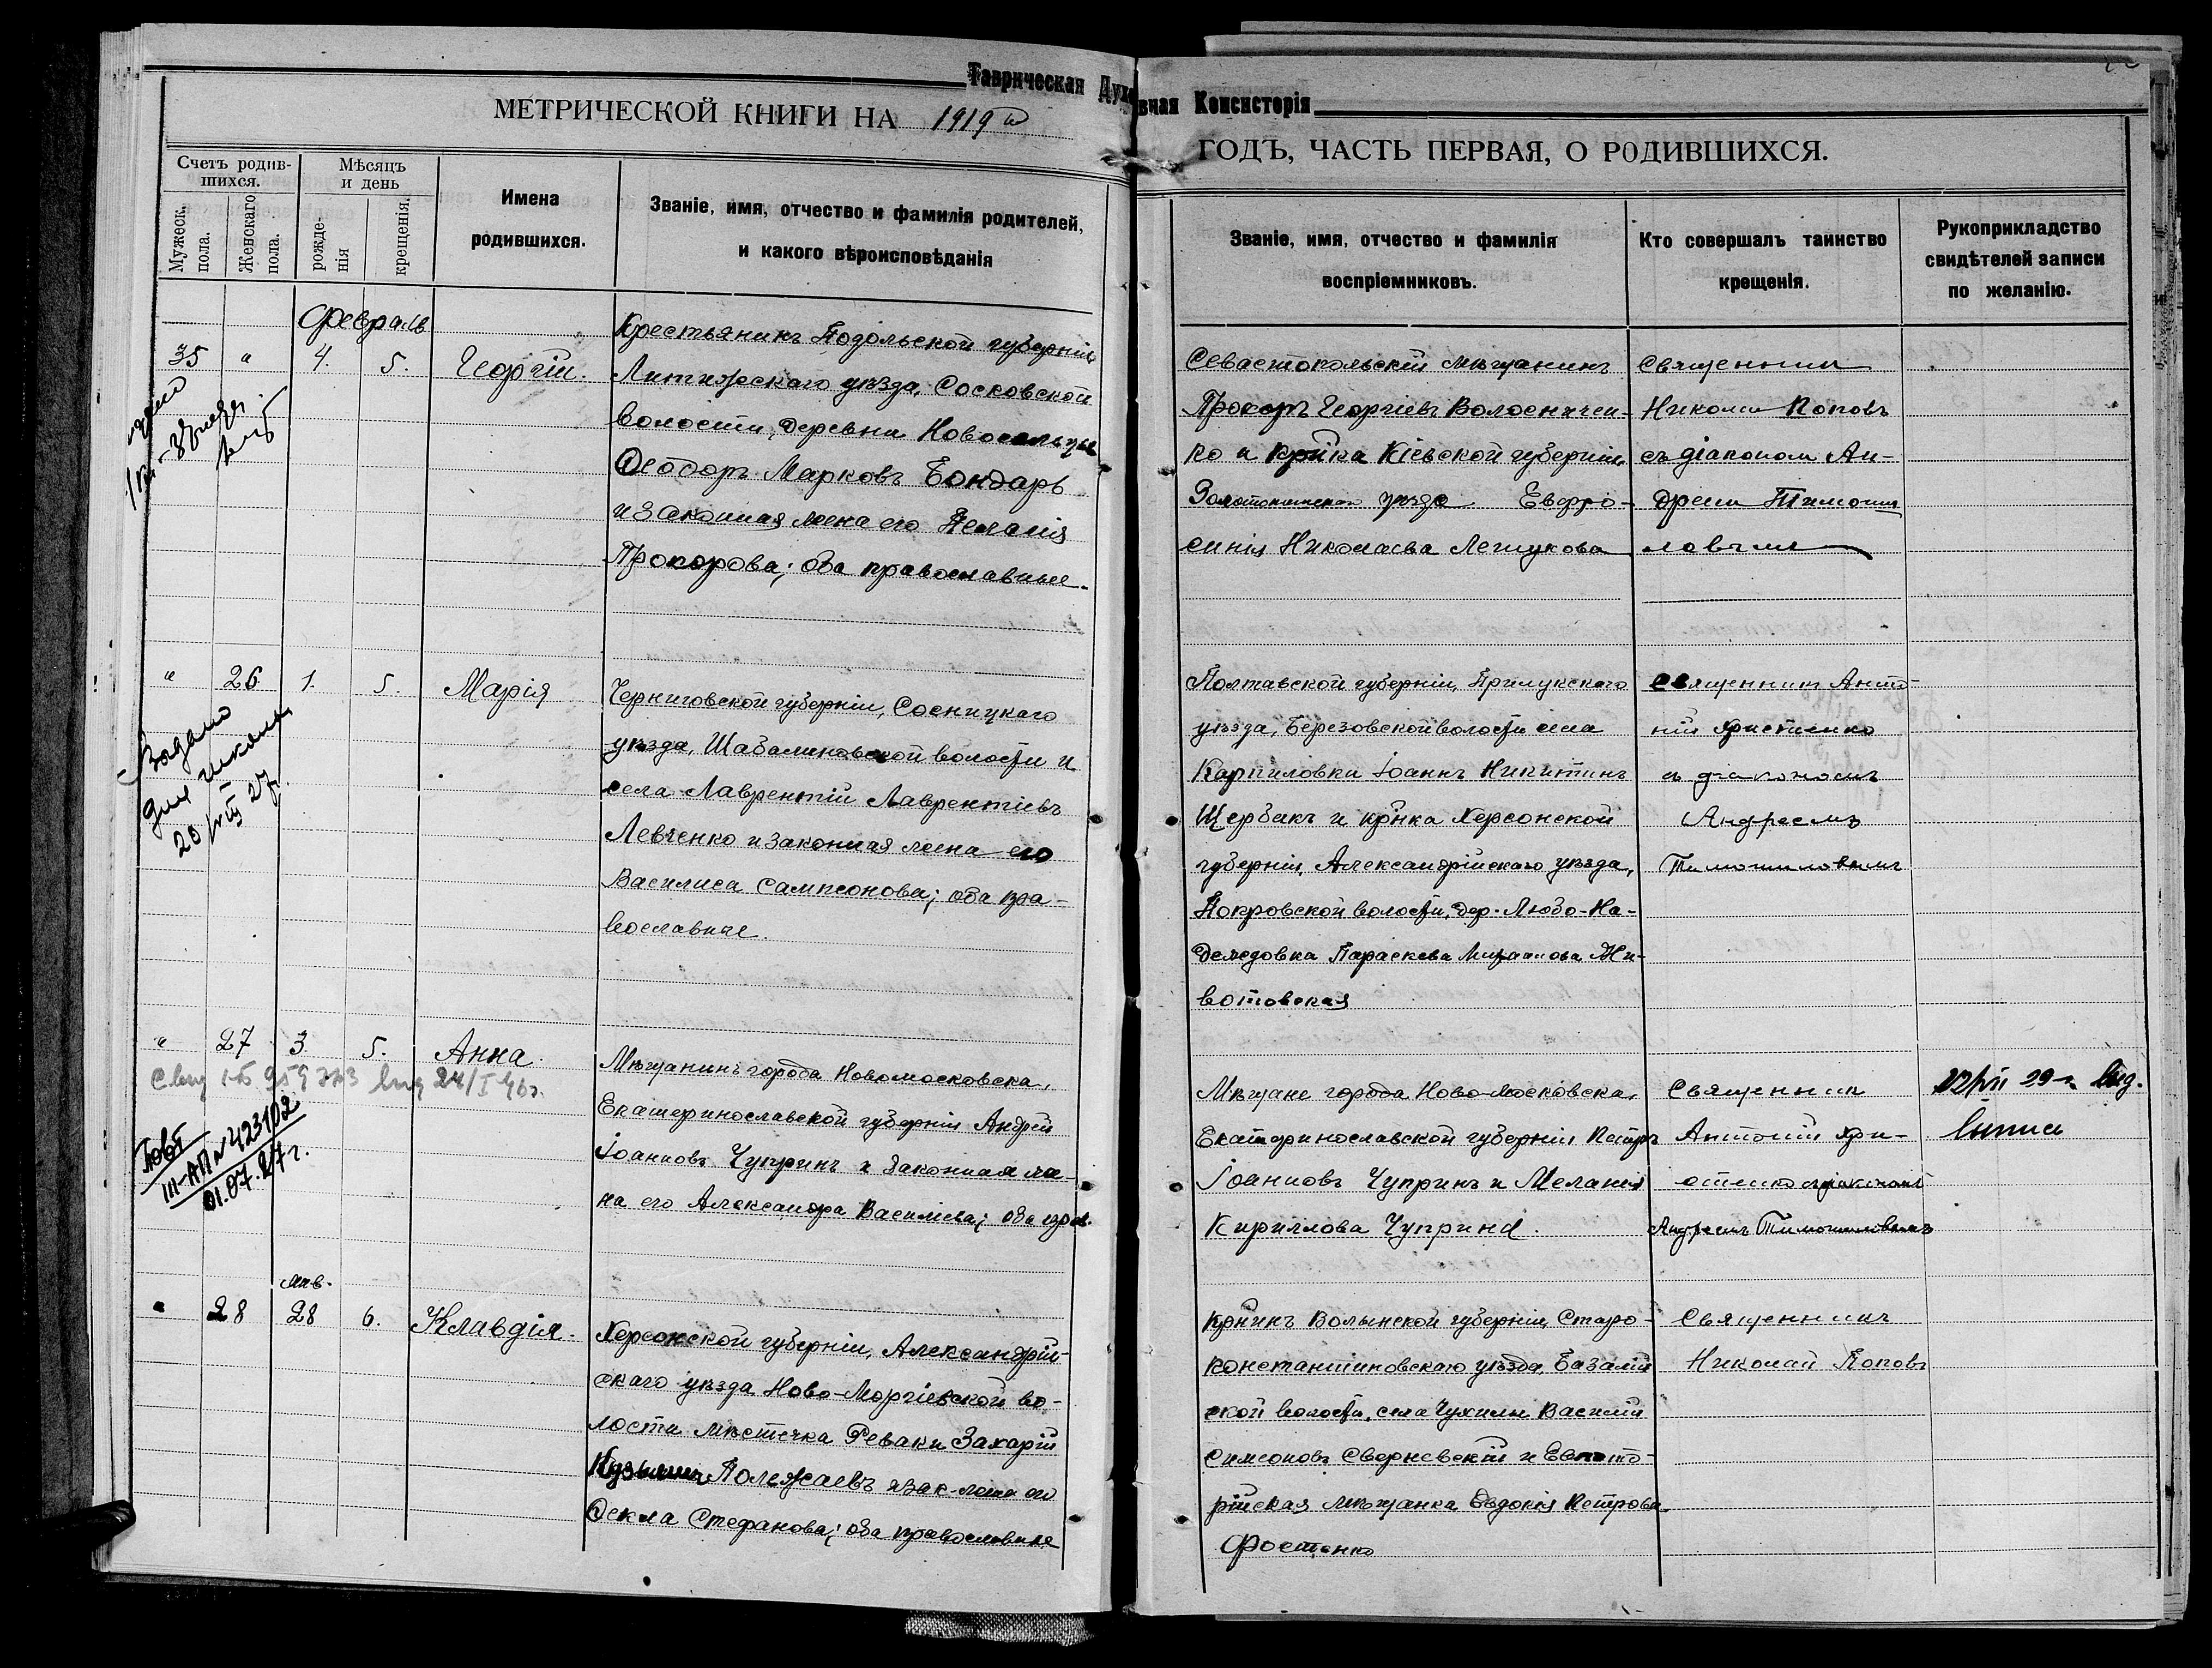 Таврическая Духовная Консисторія
МЕТРИЧЕСКОЙ КНИГИ НА 1919
ГОДЪ, ЧАСТЬ ПЕРВАЯ, О РОДИВШИХСЯ.
Счетъ родив-
шихся.
Мужеск.
пола.
Женскаго
пола.
Мѣсяцъ
и день
рожде-
нія
крещенія.
Имена
родившихся.
Званіе, имя, отчество и фамилія родителей,
и какого вѣроисповѣданія
Званіе, имя, отчество и фамилія
воспріемниковъ.
Кто совершалъ таинство
крещенія.
Рукоприкладство
свидѣтелей записи
по желанію.
Февраль
35 " 4. 5. Георгій.
Крестьянинъ Подольской губерніи,
уѣзда, Сосковской
волости, деревни Новосельцы
Ѳеодоръ Марковъ Бондарь
и законная жена его Пелагія
Прохорова; оба православные.
Севастопольскій мѣщанинъ
Прохоръ Георгіевъ
ко и Кр‑ка Кіевской губерніи,
уѣзда Евфро-
синія Николаева
Священник
Поповъ
съ діаконом Ан-
дреем Тимошил
ловымъ
" 26 1. 5. Марія
Черниговской губерніи, Сосницкаго
уѣзда, Шабалиновской волости и
села Лаврентій Лаврентіевъ
Левченко и законная жена его
Василиса Сампсонова; оба пра-
вославные.
Полтавской губерніи, Прилукскаго
уѣзда, Березовской волости села
Карпиловки Іоаннъ Никитинъ
Щербакъ и кр‑нка Херсонской
губерніи, Александрійскаго уѣзда,
Покровской волости, дер. Любо-На-
деждовка Параскева Жи-
вотовская
Священникъ Анто-
ній Христенко
съ діакономъ
Андреемъ
Тимошиловымъ
Выдано
для школы
" 27 3 5. Анна.
24/I 46г.
Повт
III-АП № 423102
01.07.27г.
Мѣщанинъ города Новомосковска,
Екатеринославской губерніи Андрей
Іоанновъ Чупринъ и законная же-
на его Александра Василіева; оба прав.
Мѣщане города Ново-Московска,
Екатеринославской губерніи Петръ
Іоанновъ Чупринъ и Меланія
Кириллова Чуприна.
Священник
Антоній Хри-
стенко съ діакономъ
Андреемъ Тимошиловымъ
Янв.
" 28 28 6. Клавдія.
Херсонской губерніи, Александрій-
скаго уѣзда Ново-Моргіевской во-
лости мѣстечка Реваки Захарій
Кузьминъ Полежаевъ и зак. жена его
Ѳекла Стефанова; оба православные
Кр‑нинъ Волынской губерніи, Старо-
константиновскаго уѣзда, Базалій
ской волости, села Василій
Симеоновъ Сверневскій и Евпато-
рійская мѣщанка Евдокія Петрова
Фостенко
Священникъ
Николай Поповъ